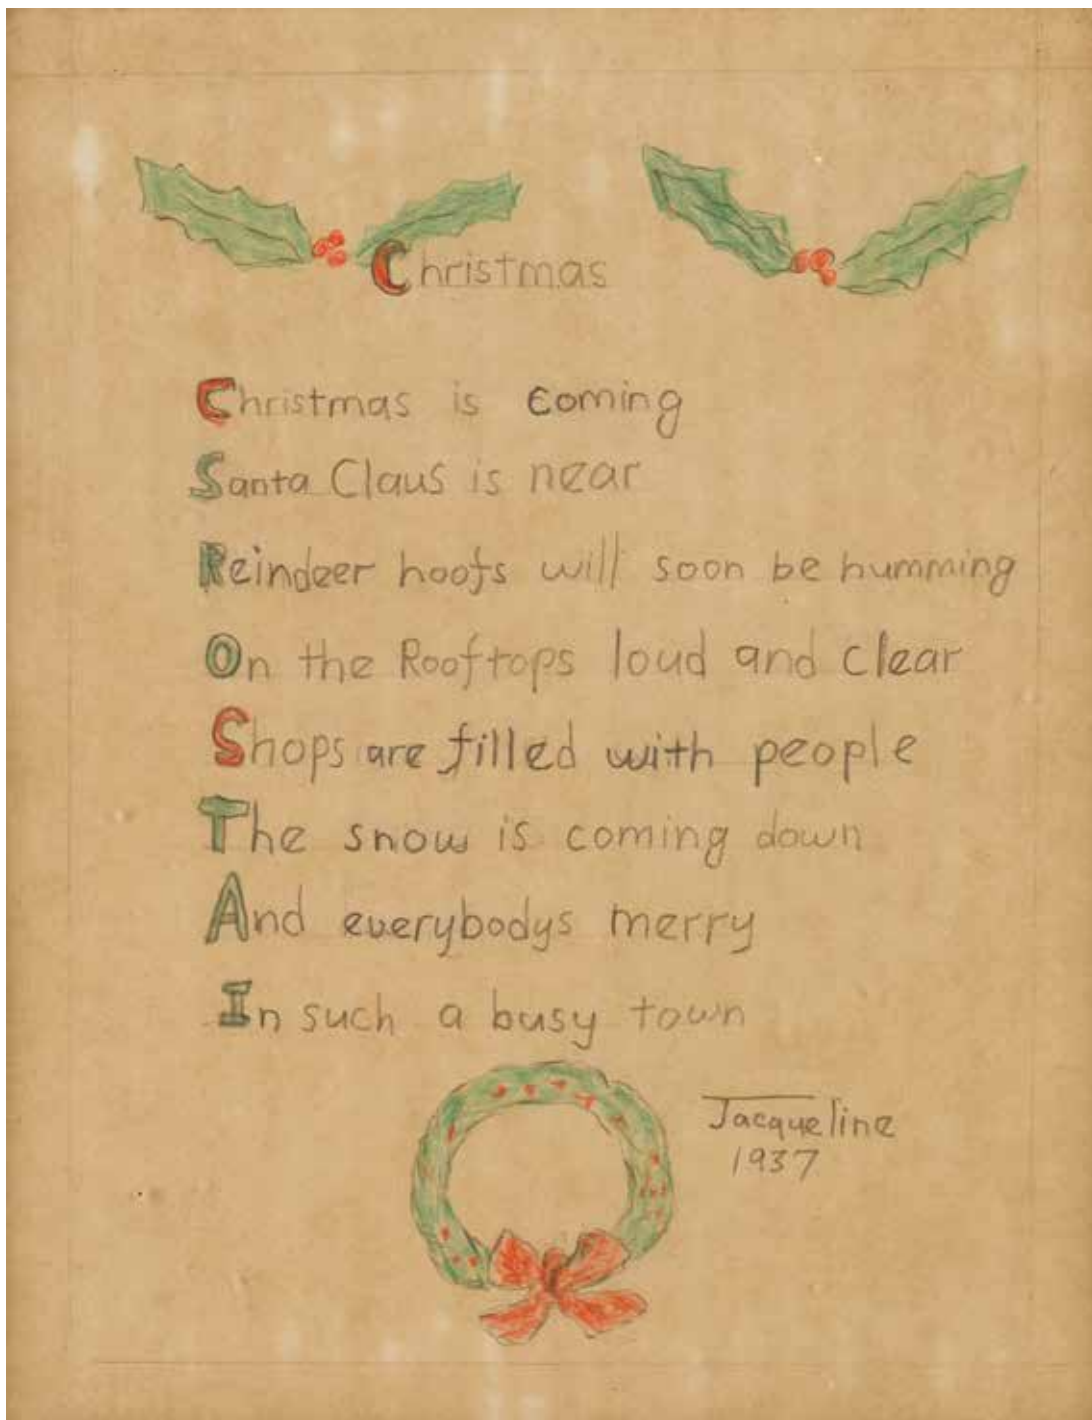 Christmas
Christmas is coming
Santa Claus is near
Reindeer hoofs will soon be humming
On the Rooftops loud and clear
Shops are filled with people
The snow is coming down
And everybodys merry
In such a busy town
Jacqueline
1937